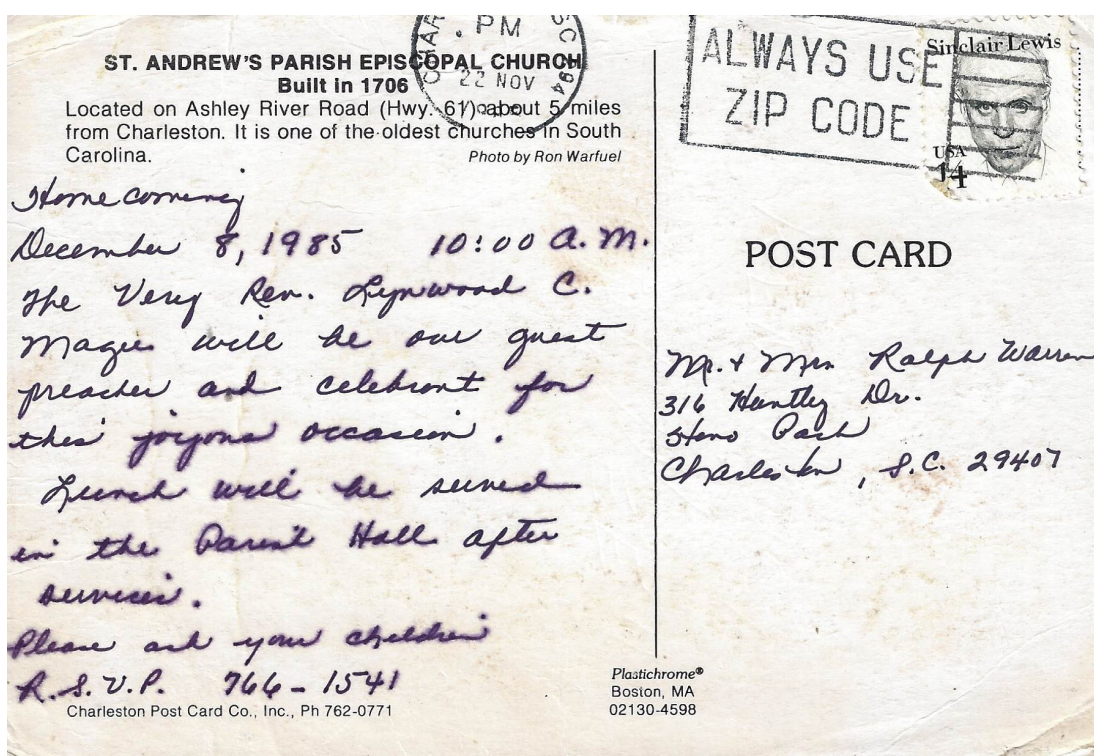 ST. ANDREW'S PARISH EPISCOPAL CHURCH
Built in 1706
Located on Ashley River Road (Hwy. 61) about 5 miles
from Charleston. It is one of the oldest churches in South
Carolina.
Photo by Ron Warfuel
Homecoming
December 8, 1985 10:00 A.M.
The Very Rev. Lynwood C.
Magee will be our guest
preacher and celebrant for
this joyous occasion.
Lunch will be served
in the Parish Hall after
services.
Please ask your children
R.S.V.P. 766-1541
Charleston Post Card Co., Inc., Ph 762-0771
Plastichrome®
Boston, MA
02130-4598
PM
22 NOV
SC 294
ALWAYS USE
ZIP CODE
Sinclair Lewis
USA
14
POST CARD
Mr. & Mrs Ralph Warren
316 Huntley Dr.
Charleston, S.C. 29407